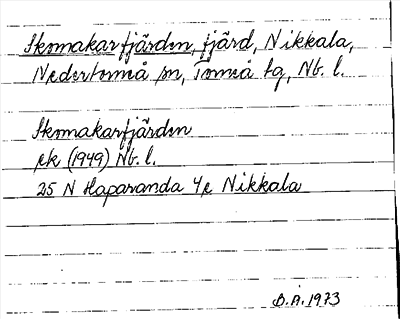 Skomakarfjärden, fjärd, Nikkala,
Nedertorneå sn, Torneå tg, Nb. l.
Skomakarfjärden
ek (1949) Nb. l.
25 N Haparanda 4e Nikkala
B.A. 1973